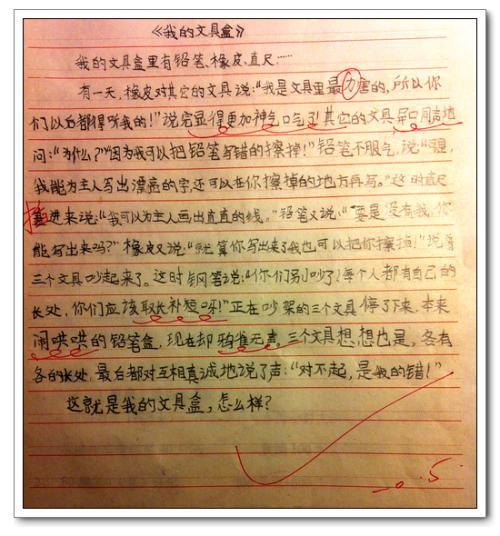 《我的文具盒》
我的文具盒里有铅笔、橡皮、直尺……
有一天,橡皮对其它的文具说:“我是文具里最力害的,所以你
们以后都得听我的!”说完显得更加神气,其它的文具异口同声地
问:“为什么?”“因为我可以把铅笔写错的擦掉!”铅笔不服气,说:“可是,
我能为主人写出漂亮的字,还可以在你擦掉的地方再写。”这时直尺
进来说:“我可以为主人画出直直的线。”铅笔又说:“要是没有我,你
能写出来吗?”橡皮又说:“就算你写出来了我也可以把你擦掉!”说着
三个文具吵起来了。这时钢笔说:“你们别吵了!每个人都有自己的
长处,你们应该取长补短呀!”正在吵架的三个文具停了下来,本来
闹哄哄的铅笔盒,现在却鸦雀无声,三个文具想想也是,各有
各的长处,最后都对互相真诚地说了声:“对不起,是我的错!”
这就是我的文具盒,怎么样?